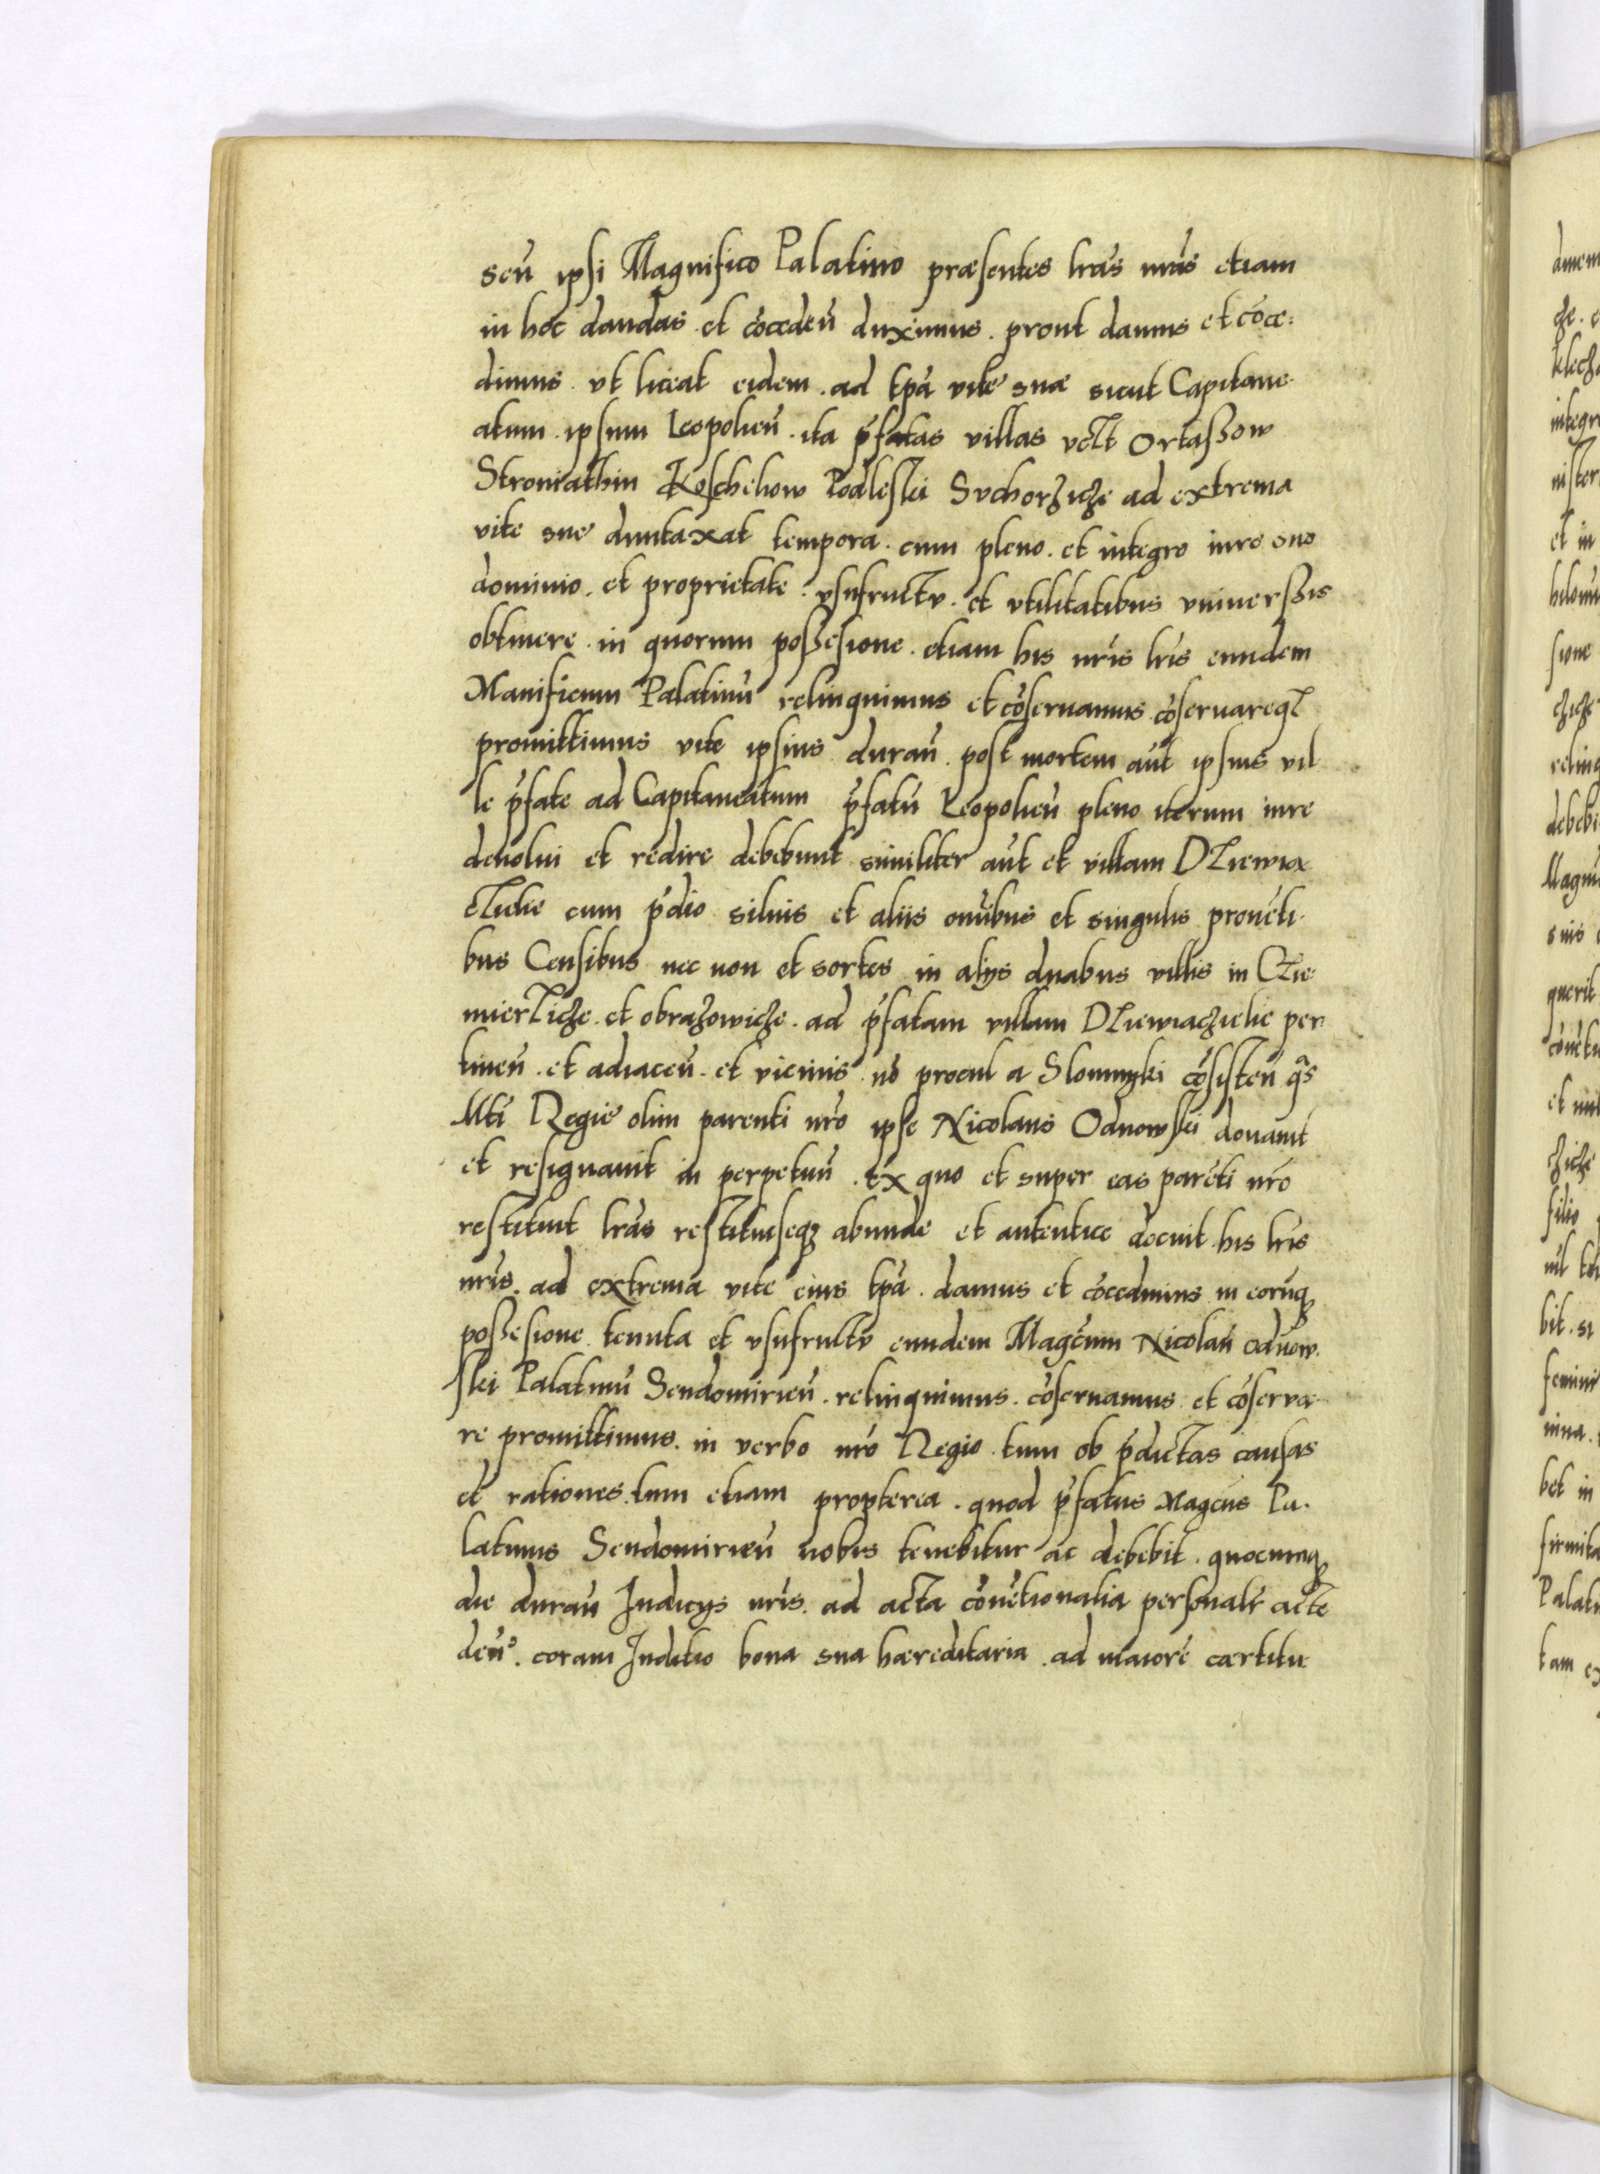 seū ipsi Magnifico Palatino præsentes lrās nrās etiam
in hoc dandas et cōcedeñ duximus . prout damus et cōce.
dimus . vt liceat eidem . ad tpā vite suæ sicut Capitane
atum . ipsum Leopolieñ . ita p̄fatas villas vc̄lt Ortassow
Stroniathin Koscheliow Podleski Suchorzicze ad extrema
vite sue duntaxat tempora . cum pleno . et integro iure suo
dominio . et proprietate . vsufructu . et vtilitatibus vniversis
obtinere . in quorum possesione . etiam his nrīs lrīs eundem
Manificum Palatinū relinquimus et cōseruamus cōseruareqʒ
promittimus vite ipsius durañ . post mortem aūt ipsius vil
le p̄fate ad Capitaneatum p̄fatū Leopolieñ pleno iterum iure
deuolui et redire debebunt similiter aūt et villam Dziewia
czielie cum p̄dio siluis et aliis omībus et singulis prouēti.
bus Censibus nec non et sortes in alijs duabus villis in
mierzicze . et obrazowicze . ad p̄fatam villam Dziewiaczielie per
tineñ . et adiaceñ . et vicinis nō procul a Slomnyki cōsisteñ qᵃs
Mti Regie olim parenti nrō ipse Nicolaus Odnowski donauit
et resignauit in perpetuū . Ex quo et super eas parēti nrō
restituit lrās restituiseqʒ abunde et autentice docuit his lrīs
nrīs . ad extrema vite eius tpā . damus et cōcedimus in eorūqʒ
possesione tenuta et vsufructu eundem Magc̄um Nicolaū odnow.
ski Palatinū Sendomirieñ . relinquimus . cōseruamus et cōserva
re promittimus . in verbo nrō Regio . tum ob p̄dictas causas
et rationes . tum etiam propterea . quod p̄fatus Magc̄us Pa.
latinus Sendomirieñ nobis tenebitur ac debebit . quocunqʒ
die durañ Iudicijs nrīs . ad acta cōuētionalia personalr̄ acte
deñ . coram Iuditio bona sua hæreditaria . ad maiorē cærtitu